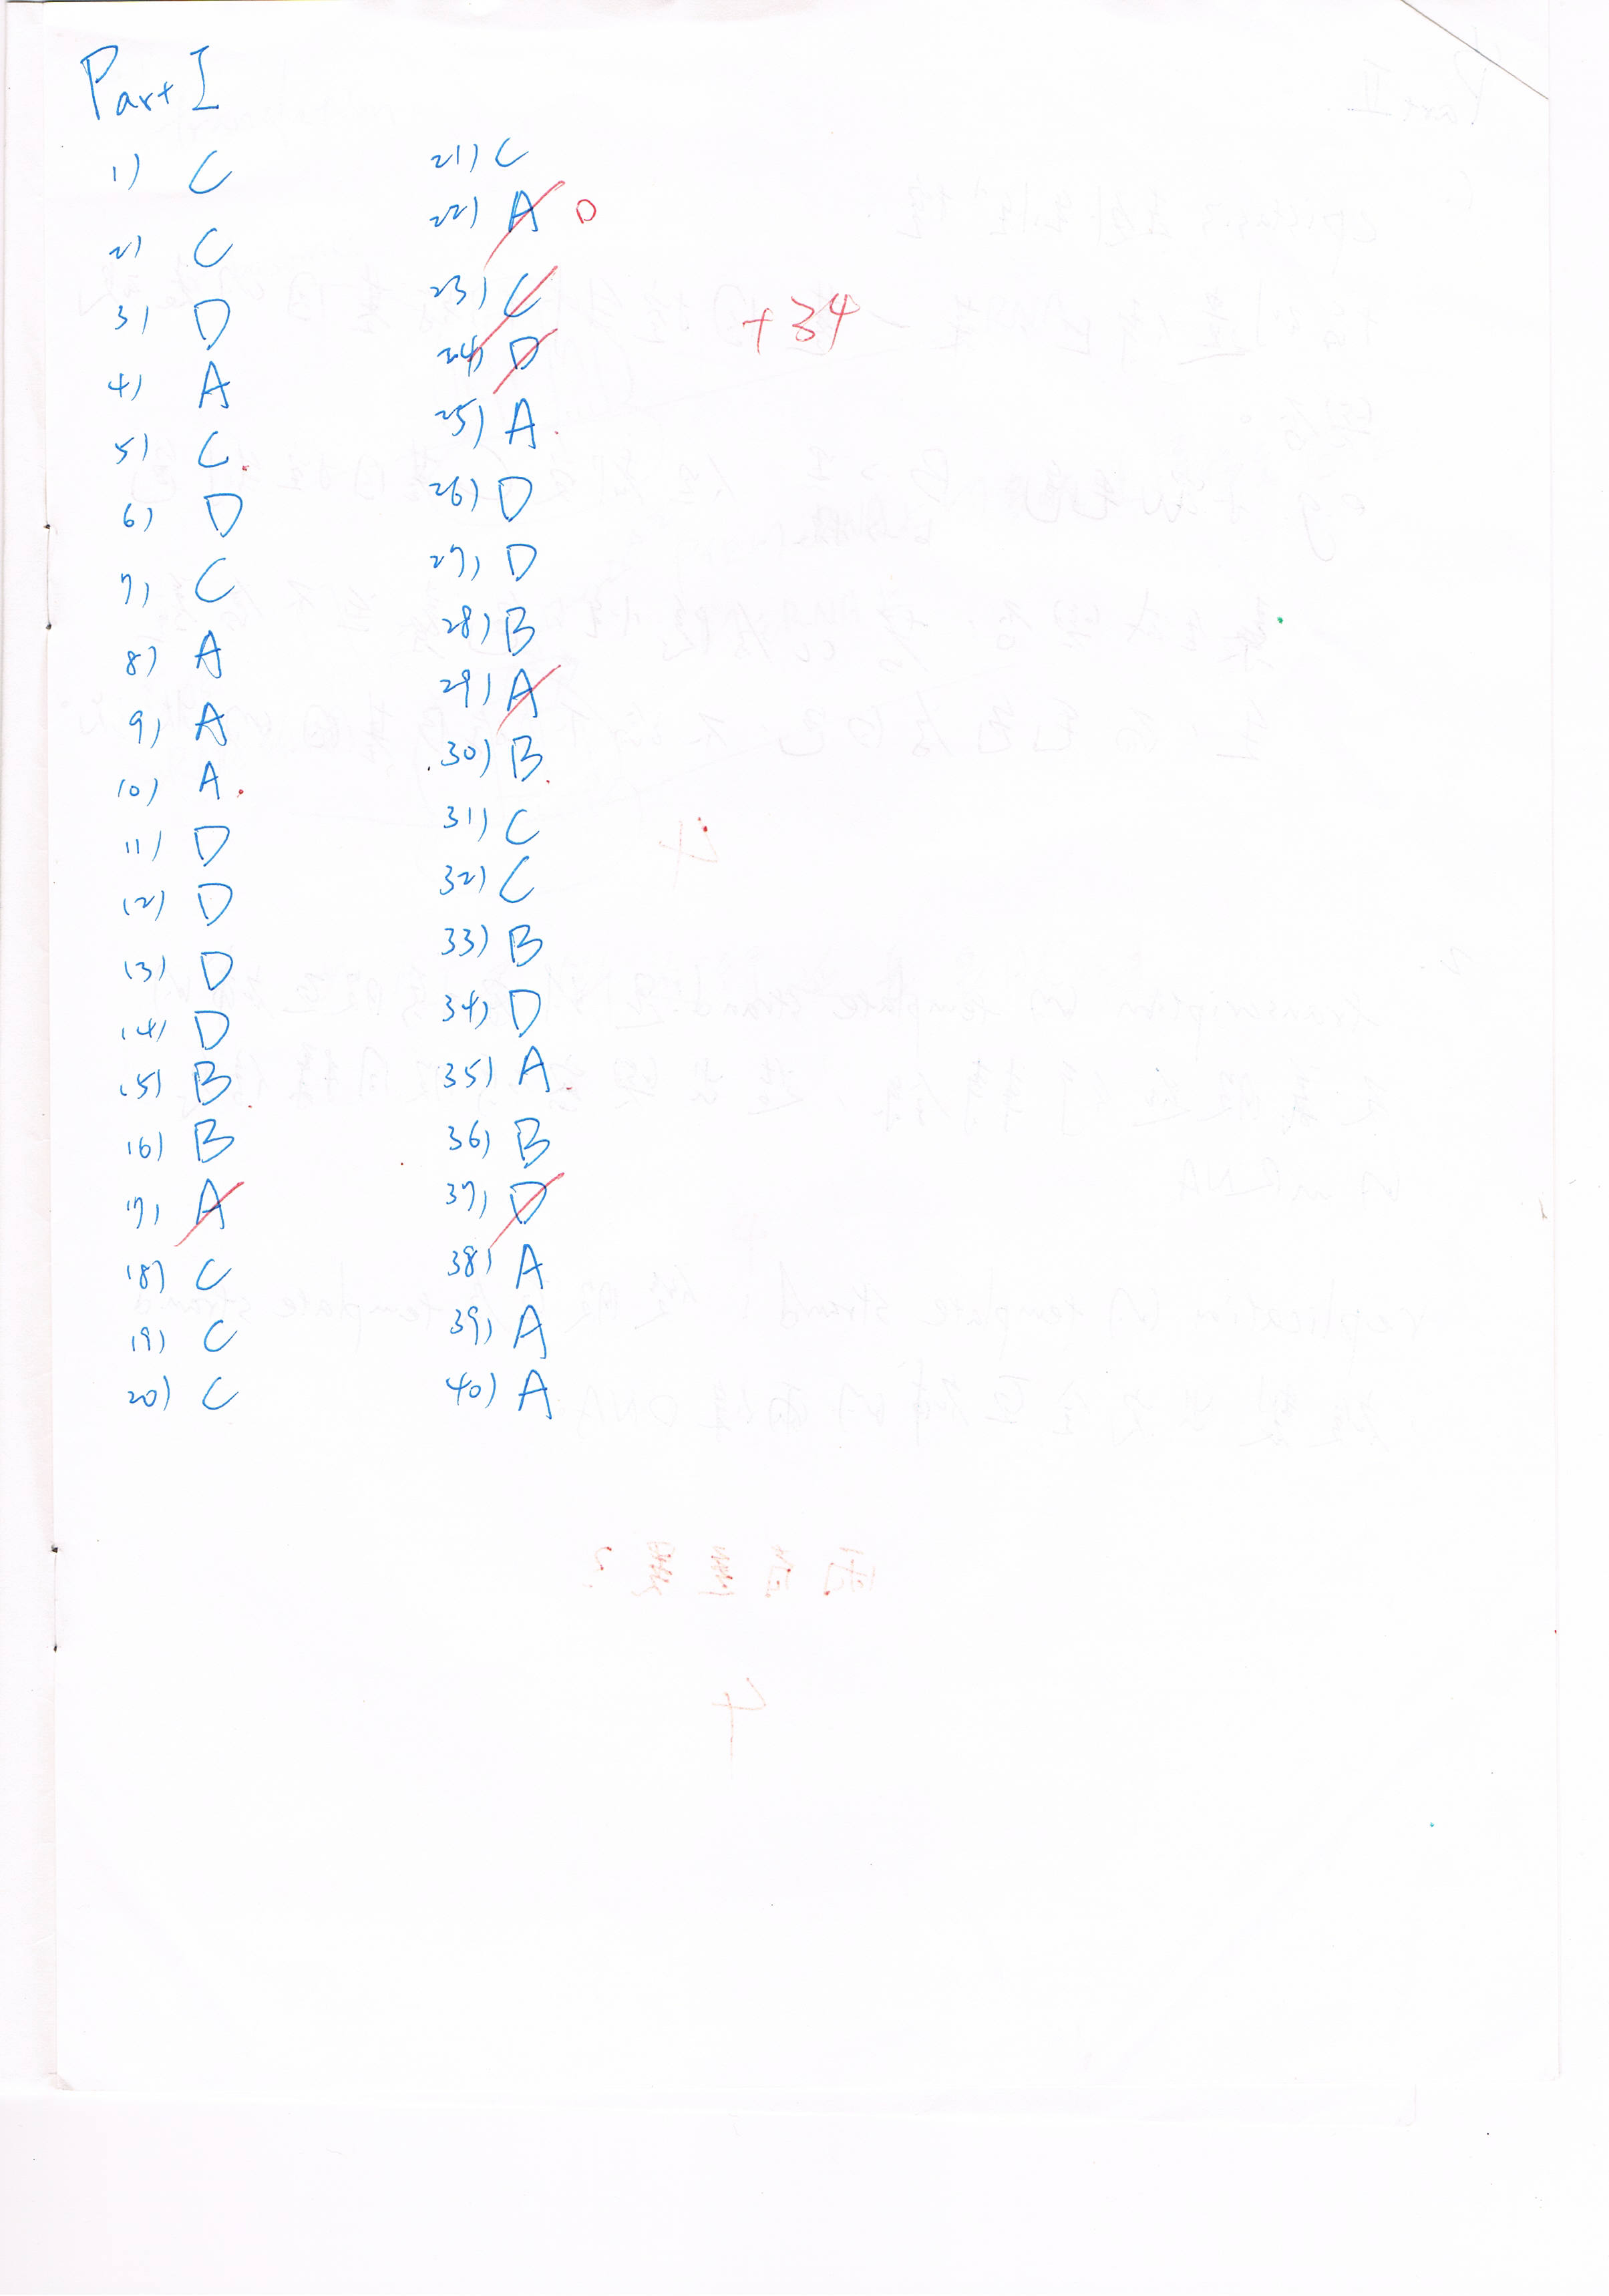 Part I
1) C
2) C
3) D
4) A
5) C
6) D
7) C
8) A
9) A
10) A
11) D
12) D
13) D
14) D
15) B
16) B
17) A
18) C
19) C
20) C
21) C
22) A D
23) C
24) D
25) A
26) D
27) D
28) B
29) A
30) B
31) C
32) C
33) B
34) D
35) A
36) B
37) D
38) A
39) A
40) A
+34